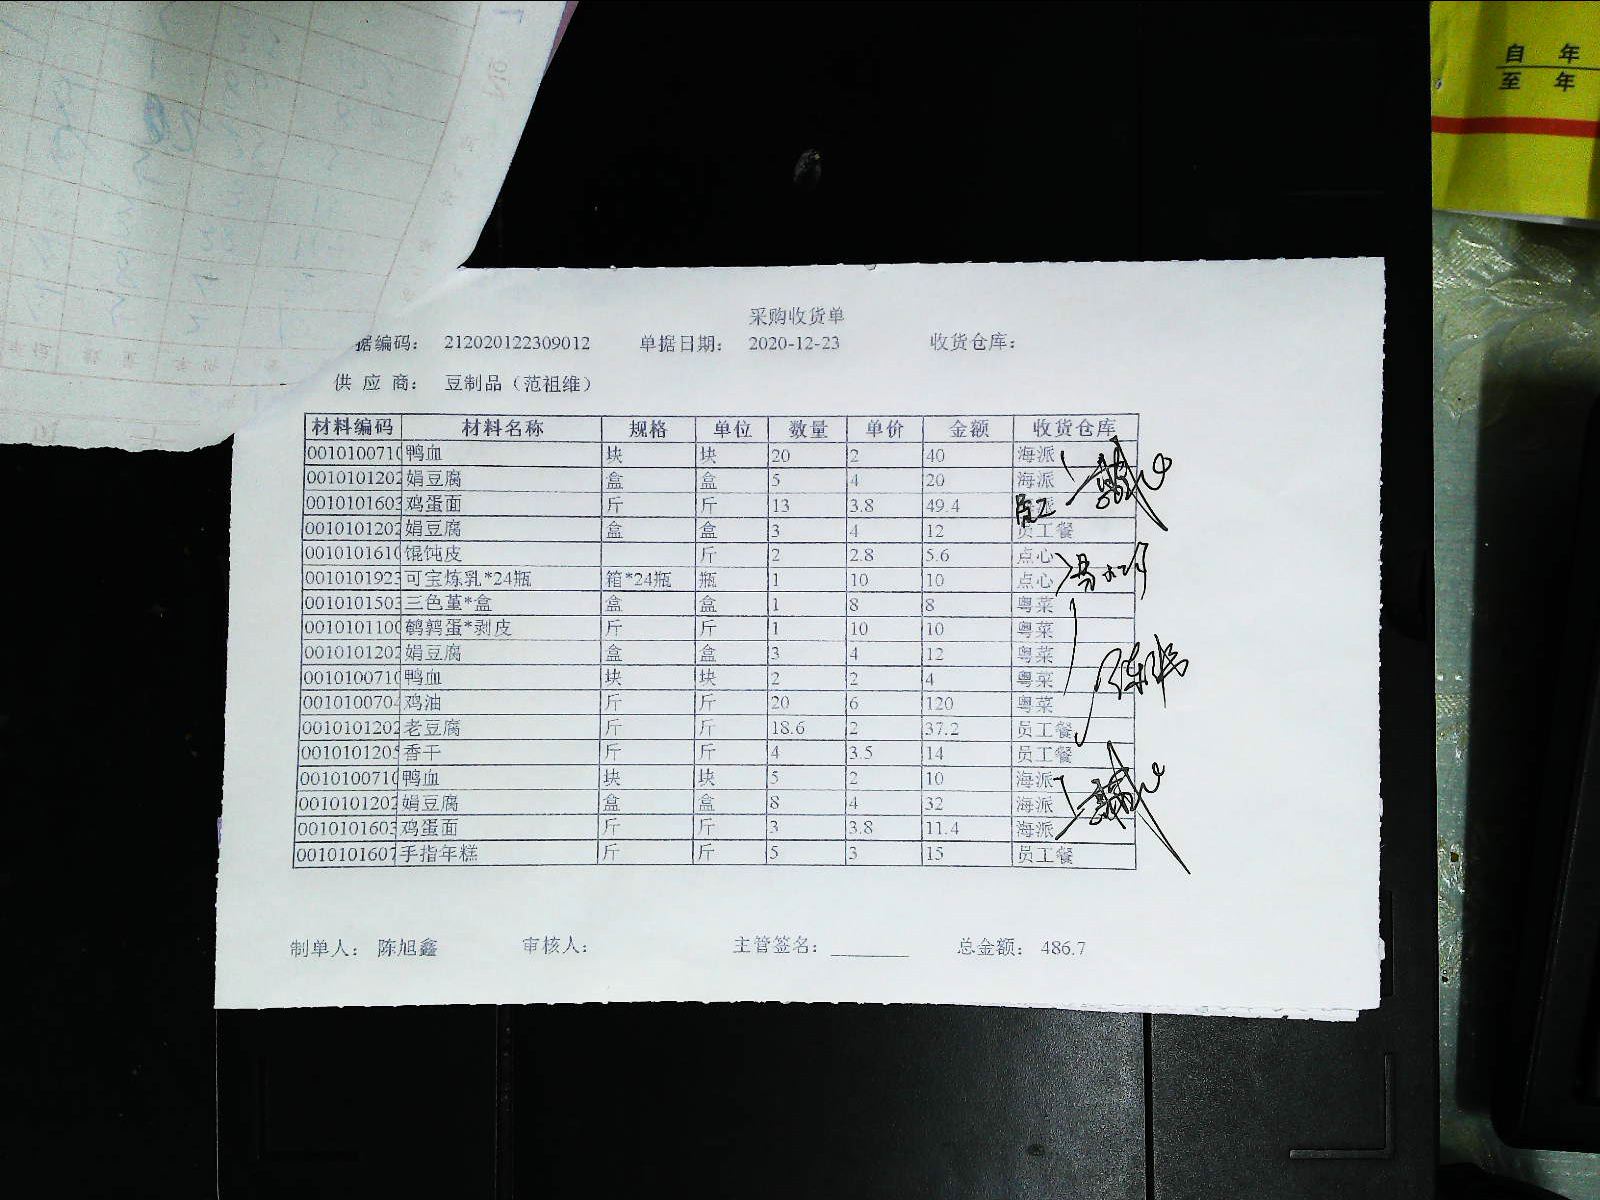 自 年
至 年
采购收货单
据编码： 212020122309012 单据日期： 2020-12-23 收货仓库：
供 应 商： 豆制品（范祖维）
材料编码 材料名称 规格 单位 数量 单价 金额 收货仓库
001010071 鸭血 块 块 20 2 40 海派
0010101202 娟豆腐 盒 盒 5 4 20 海派
0010101603 鸡蛋面 斤 斤 13 3.8 49.4
0010101202 娟豆腐 盒 盒 3 4 12 员工餐
001010161 馄饨皮 斤 2 2.8 5.6 点心
0010101923 可宝炼乳*24瓶 箱*24瓶 瓶 1 10 10 点心
0010101503 三色堇*盒 盒 盒 1 8 8 粤菜
001010110 鹌鹑蛋*剥皮 斤 斤 1 10 10 粤菜
0010101202 娟豆腐 盒 盒 3 4 12 粤菜
001010071 鸭血 块 块 2 2 4 粤菜
0010100704 鸡油 斤 斤 20 6 120 粤菜
0010101202 老豆腐 斤 斤 18.6 2 37.2 员工餐
0010101205 香干 斤 斤 4 3.5 14 员工餐
001010071 鸭血 块 块 5 2 10 海派
0010101202 娟豆腐 盒 盒 8 4 32 海派
0010101603 鸡蛋面 斤 斤 3 3.8 11.4 海派
0010101607 手指年糕 斤 斤 5 3 15 员工餐
制单人： 陈旭鑫 审核人： 主管签名： 总金额： 486.7